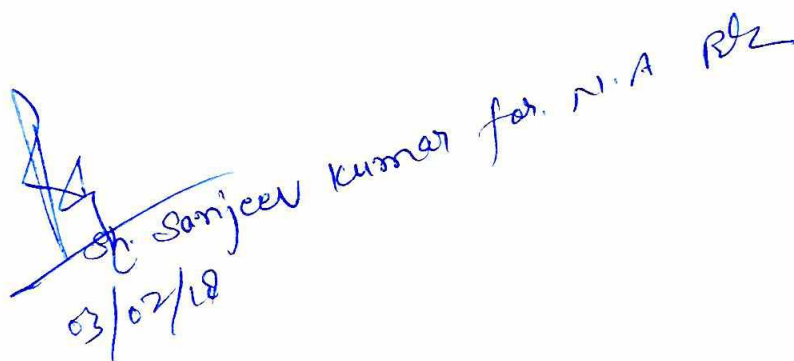 Sh. Sanjeev Kumar for. N.A Plz
03/02/18